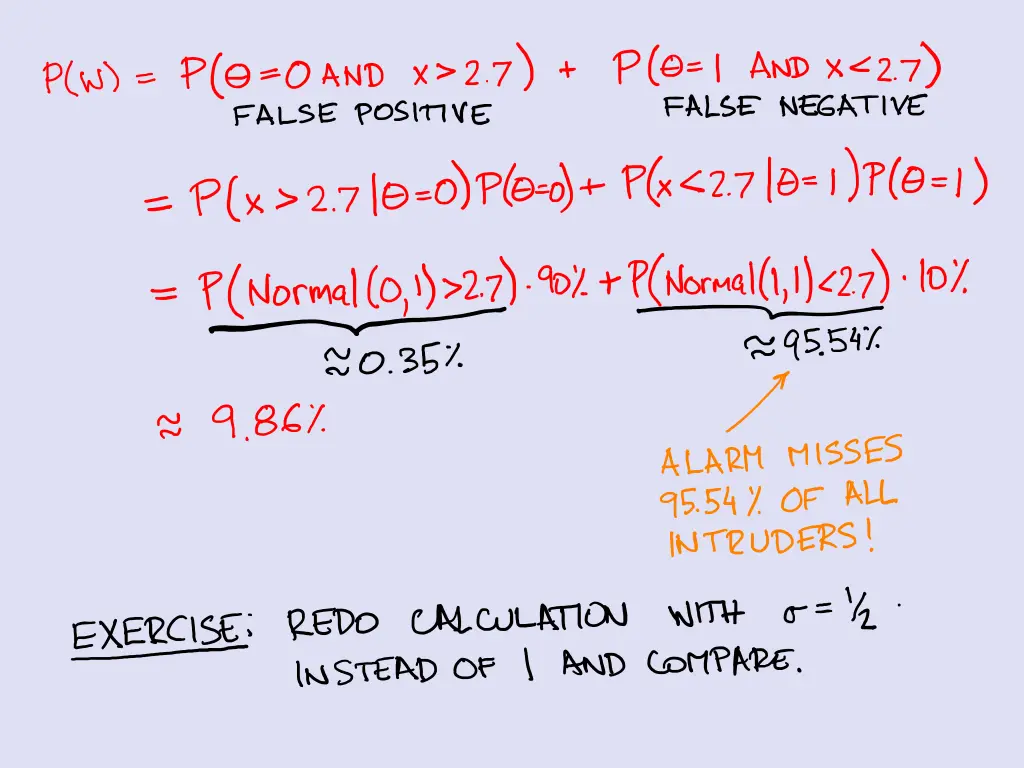 P(W) = P(θ=0 AND x>2.7) + P(θ=1 AND x<2.7)
FALSE POSITIVE FALSE NEGATIVE
= P(x>2.7|θ=0)P(θ=0) + P(x<2.7|θ=1)P(θ=1)
= P(Normal(0,1)>2.7)·90% + P(Normal(1,1)<2.7)·10%
≈0.35% ≈95.54%
≈ 9.86%
ALARM MISSES
95.54% OF ALL
INTRUDERS!
EXERCISE: REDO CALCULATION WITH σ = 1/2
INSTEAD OF 1 AND COMPARE.